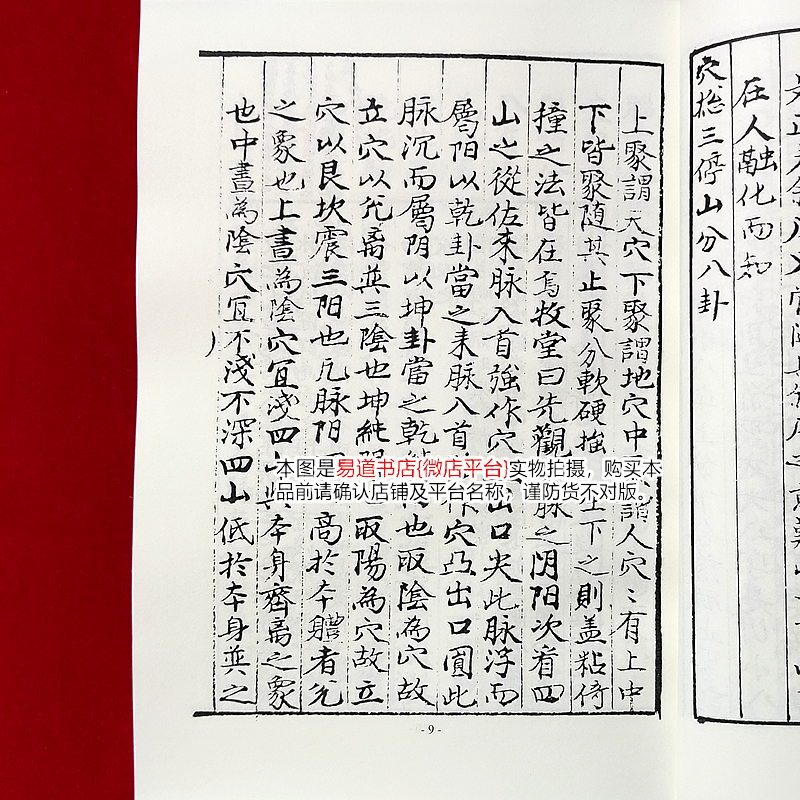 在人融化而知
穴总三停山分八卦
上聚謂天穴下聚謂地穴中聚謂人穴〻有上中
下皆聚随其止聚分軟硬 上下之則盖粘倚
撞之法皆在焉牧堂曰先觀 脉之阴阳次看四
山之從佐来脉入首強作穴 出口尖此脉浮而
屬阳以乾卦當之来脉入首 作穴凸出口圓此
脉沉而屬阴以坤卦當之乾 也取陰為穴故
立穴以兊离巽三陰也坤純阴 取陽為穴故立
穴以艮坎震三阳也凡脉阳 高於夲體者兊
之象也上畫為陰穴冝淺四山與夲身齊离之象
也中畫為陰穴冝不淺不深四山低於夲身巽之
本图是易道书店(微店平台)实物拍摄，购买本
品前请确认店铺及平台名称，谨防货不对版。
- 9 -